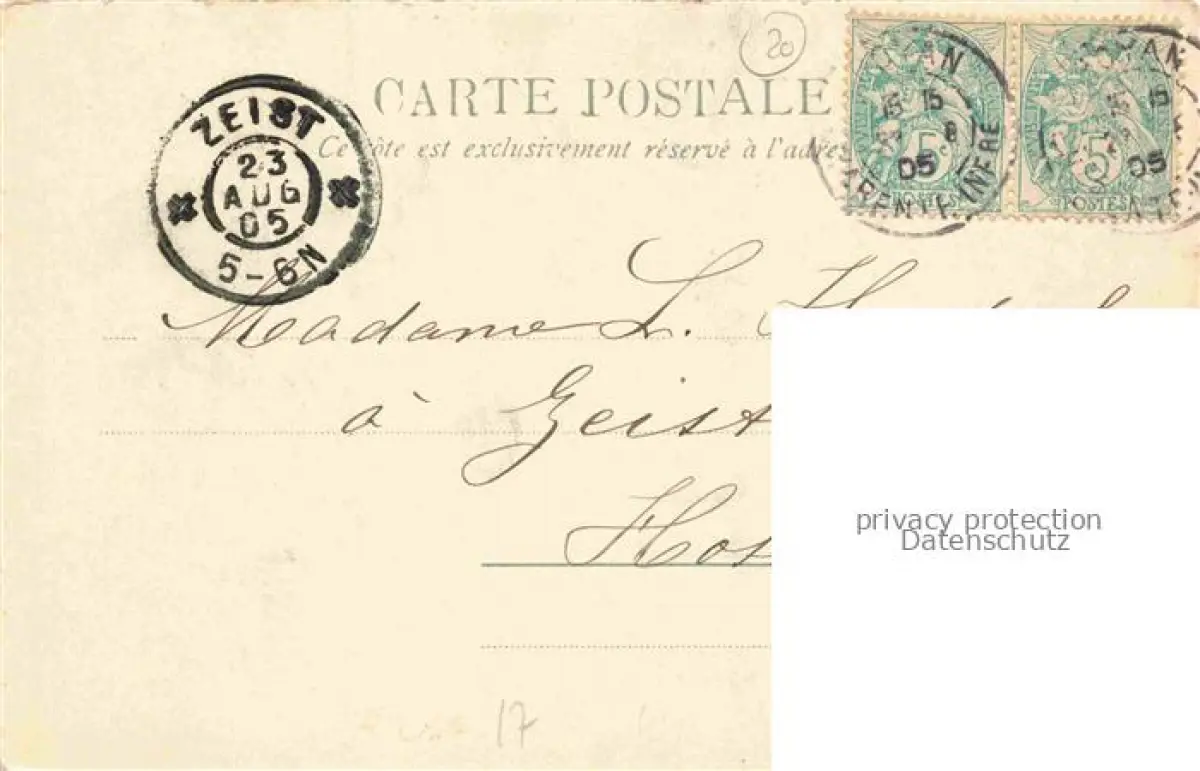 20
CARTE POSTALE
Ce côte est exclusivement réservé à l'adres
ZEIST
23
AUG
05
5-6N
5
POSTES
05
5
POSTES
05
Madame L.
à Zeist
17
privacy protection
Datenschutz